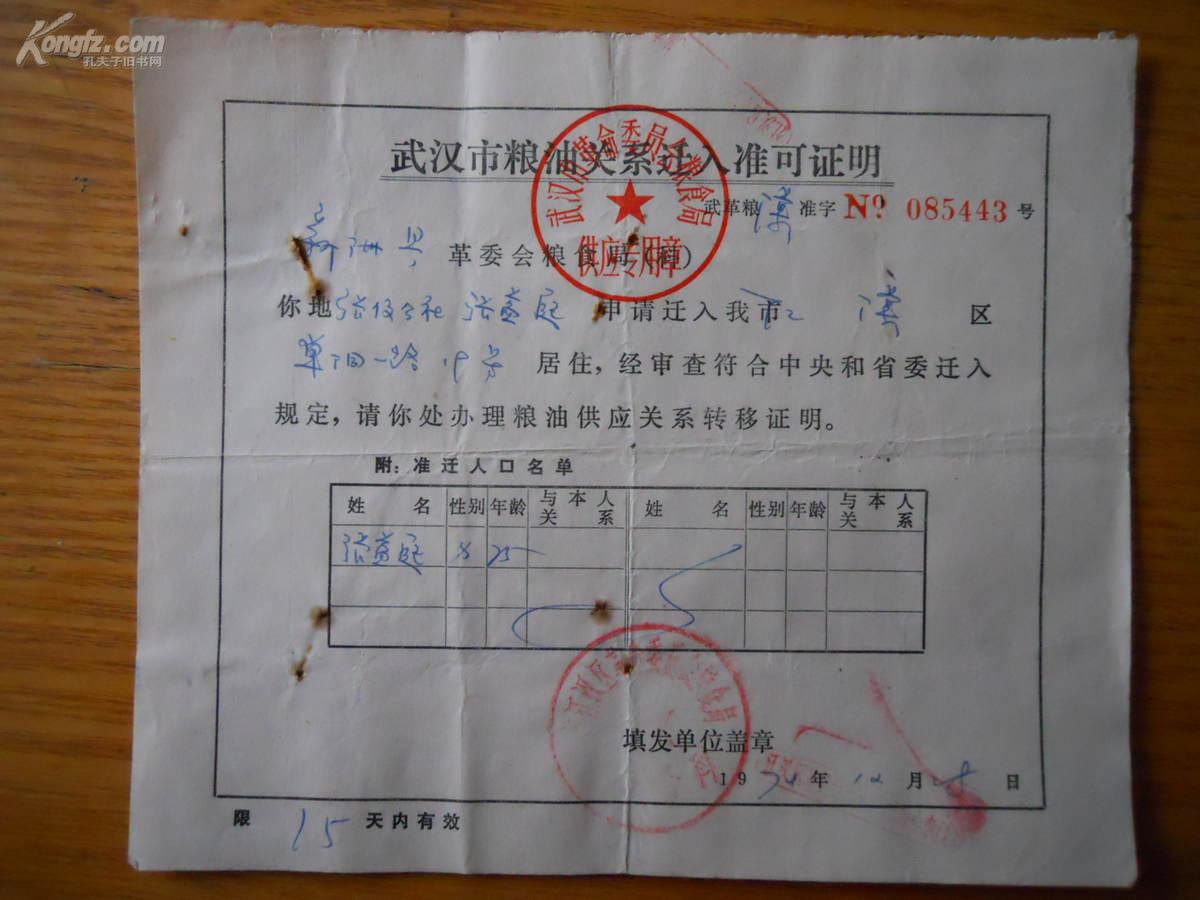 Kongfz.com
孔夫子旧书网
武汉市粮油关系迁入准可证明
武汉市革命委员会粮食局
供应专用章
武革粮 准字 № 085443 号
县 革委会粮食局(科)
你地 张 申请迁入我市 区
一路 19号 居住，经审查符合中央和省委迁入
规定，请你处办理粮油供应关系转移证明。
附：准迁人口名单
姓名 性别 年龄 与本人关系 姓名 性别 年龄 与本人关系
张 25
填发单位盖章
197 年 12 月 日
限 15 天内有效